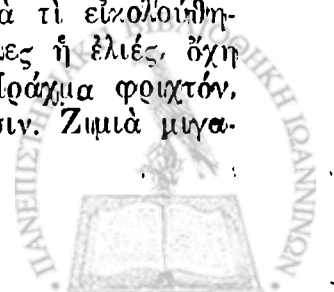 ὰ τὶ εἰκολοίηθη-
λες ἢ ἐλιές, ὄχη
Πράχμα φριχτόν,
σιν. Ζιμιὰ μιγα-
ΠΑΝΕΠΙΣΤΗΜΙΑΚΗ ΒΙΒΛΙΟΘΗΚΗ ΙΩΑΝΝΙΝΩΝ